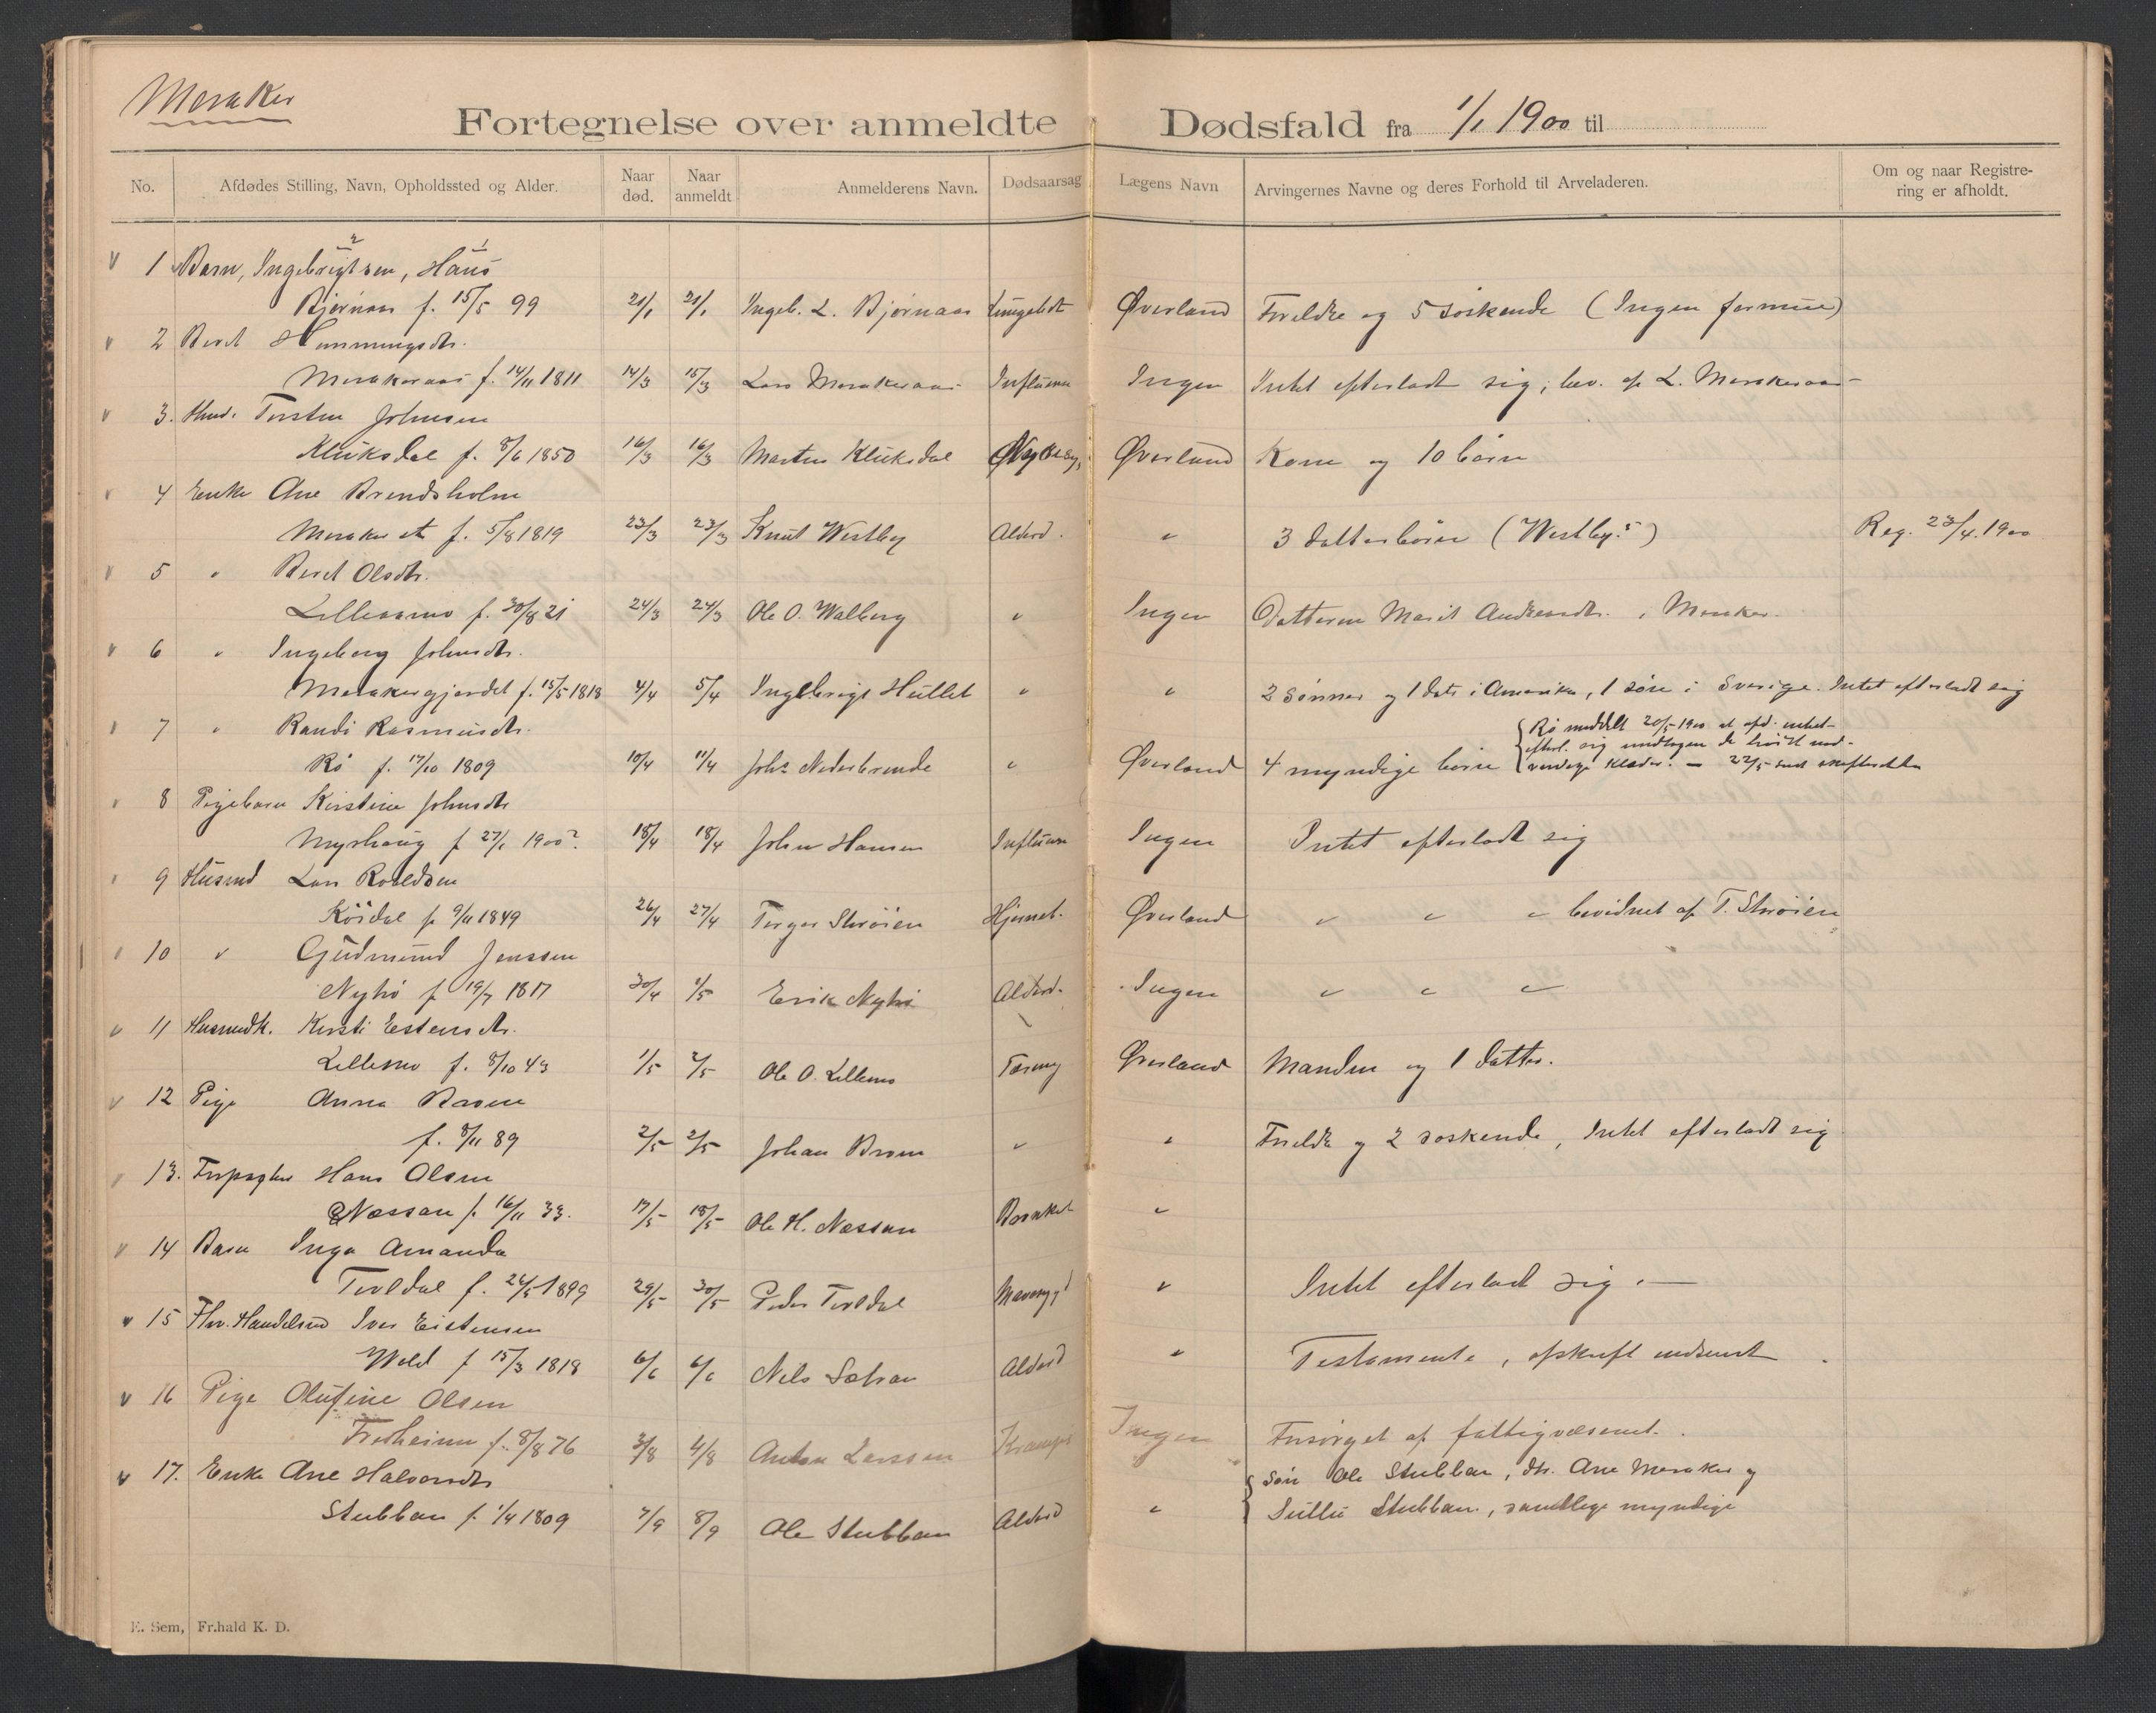 Meraker
Fortegnelse over anmeldte Dødsfald fra 1/1 1900 til
No. Afdødes Stilling, Navn, Opholdssted og Alder. Naar død. Naar anmeldt Anmelderens Navn. Dødsaarsag Lægens Navn Arvingernes Navne og deres Forhold til Arveladeren. Om og naar Registrering er afholdt.
1 Barn, Ingebrigtsen, Hans
Bjørnaas f. 15/5 99 21/1 21/1 Ingeb. L. Bjørnaas Lungebet Øverland Foreldre og 5 søskende (Ingen formue)
2 Beret Hemmingsdtr.
Merakeraas f. 14/11 1811 14/3 15/3 Lars Merakeraas Influensa Ingen Intet efterladt sig, bev. af L. Merakeraas
3. Husm. Torsten Johnsen
Kluksdal f. 8/6 1850 16/3 16/3 Morten Kluksdal Øverland Kone og 10 børn
4 Enke Ane Brendsholm
Meraker st f. 5/8 1819 23/3 23/3 Knut Westby Alderd. " 3 datterbørn (Westby) Reg. 23/4. 1900
5 " Beret Olsdtr.
Lillemo f. 30/8 21 24/3 24/3 Ole O. Walberg " Ingen Datteren Marit Andersdtr. i Meraker.
6 " Ingeborg Johnsdtr.
Merakergjerdet f. 15/5 1818 4/4 5/4 Ingebrigt Hullet " " 2 sønner og 1 datr i Amerika, 1 søn i Sverige. Intet efterladt sig
7 " Randi Rasmusdtr.
Rø f. 17/10 1809 10/4 11/4 Johs Nederbrende " Øverland 4 myndige børn { Rø meddelt 20/5 1900 at afd. intet
efterl. sig undtagen de høist nød-
vendige Klæder. — 22/5 sendt skifteretten
8 Pigebarn Kirstine Johnsdtr
Myrhaug f 27/1 1900? 18/4 18/4 John Hansen Influensa Ingen Intet efterladt sig
9 Husmd Lars Roaldsen
Kösdal f 9/11 1849 26/4 27/4 Torger Strøien Hjernet. Øverland " " " bevidnet af T. Strøien
10 " Gudmund Jenssen
Nyhø f 19/7 1817 30/4 1/5 Erik Nyhø Alderd. Ingen " " "
11 Husmdk. Kirsti Estensdtr.
Lillemo f. 8/10 43 1/5 2/5 Ole O. Lillemo Tæring Øverland Manden og 1 datter.
12 Pige Anna Brom
f. 8/11 89 2/5 2/5 Johan Brom " " Foreldre og 2 søskende, Intet efterladt sig
13. Forpagter Hans Olsen
Næssan f. 16/11 33. 17/5 18/5 Ole H. Næssan "
14 Barn Inga Amanda
Teveldal f. 24/5 1899 29/5 30/5 Peder Teveldal Mavesygd " Intet efterladt sig. —
15 Fhv. Handelsmd Iver Eistensen
Wold f 15/3 1818 6/6 6/6 Nils Sætran Alderd " Testamente, afskrift indsendt.
16 Pige Olufine Olsen
Fredheim f. 8/8 76 3/8 4/8 Anton Larssen Krampe Ingen Forsørget af fattigvæsenet.
17. Enke Ane Halvorsdtr
Stubban f. 1/4 1809 7/9 8/9 Ole Stubban Alderd " { Søn Ole Stubban, dtr. Ane Meraker og
Stubban., samtlige myndige
E. Sem, Fr.hald K. D.